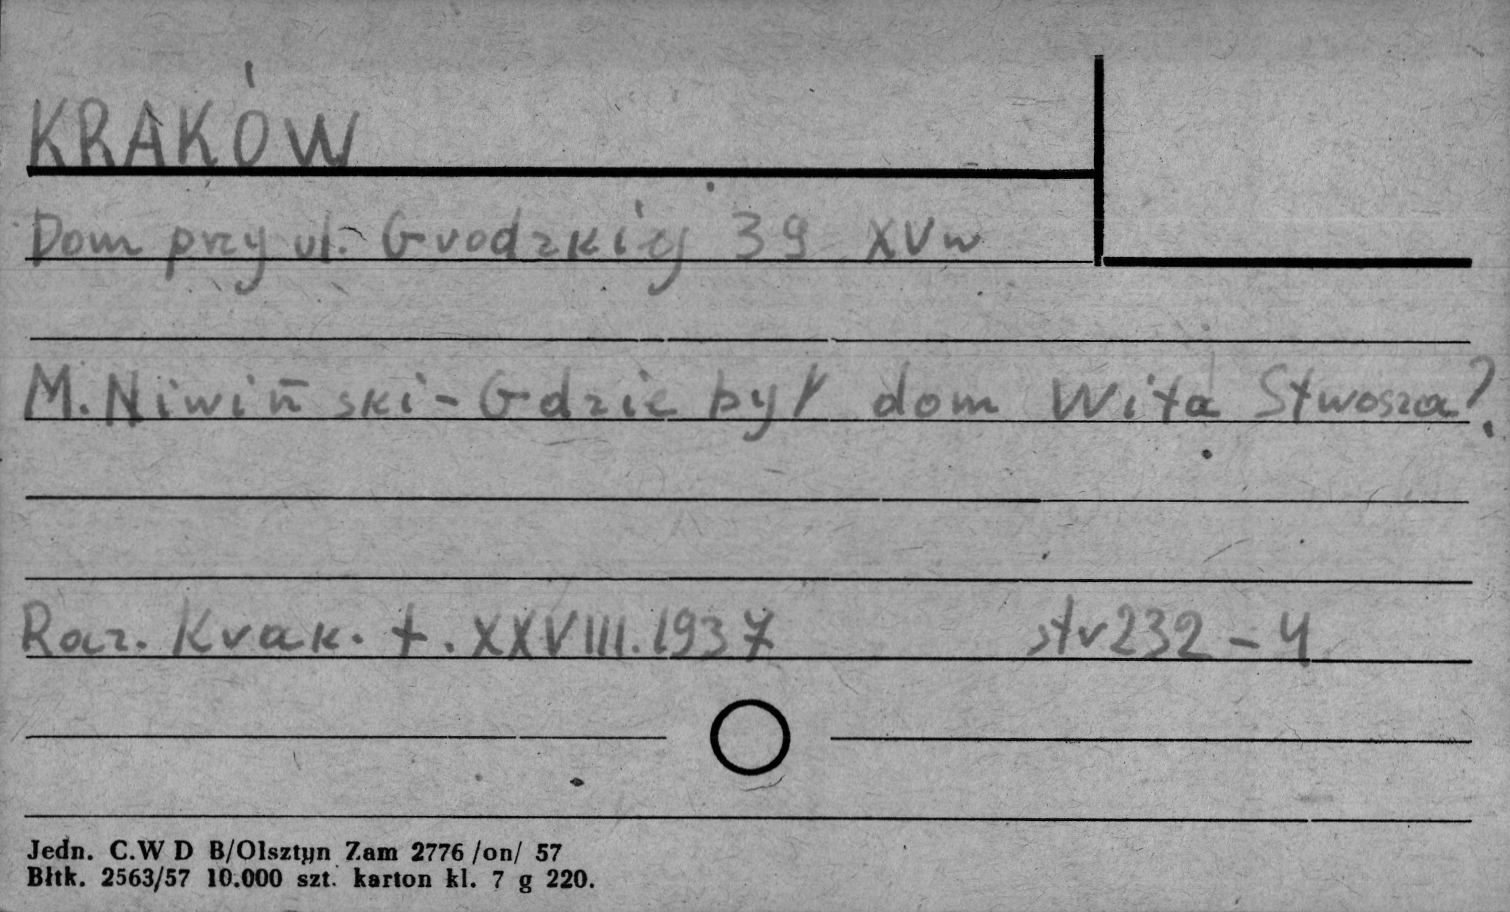 KRAKÓW
Dom przy ul. Grodzkiej 39 XV w
M. Niwiński - Gdzie był dom Wita Stwosza?
Rocz. Krak. t. XXVIII. 1937 str 232-4
Jedn. C.W D B/Olsztyn Zam 2776 /on/ 57
Błtk. 2563/57 10.000 szt. karton kl. 7 g 220.